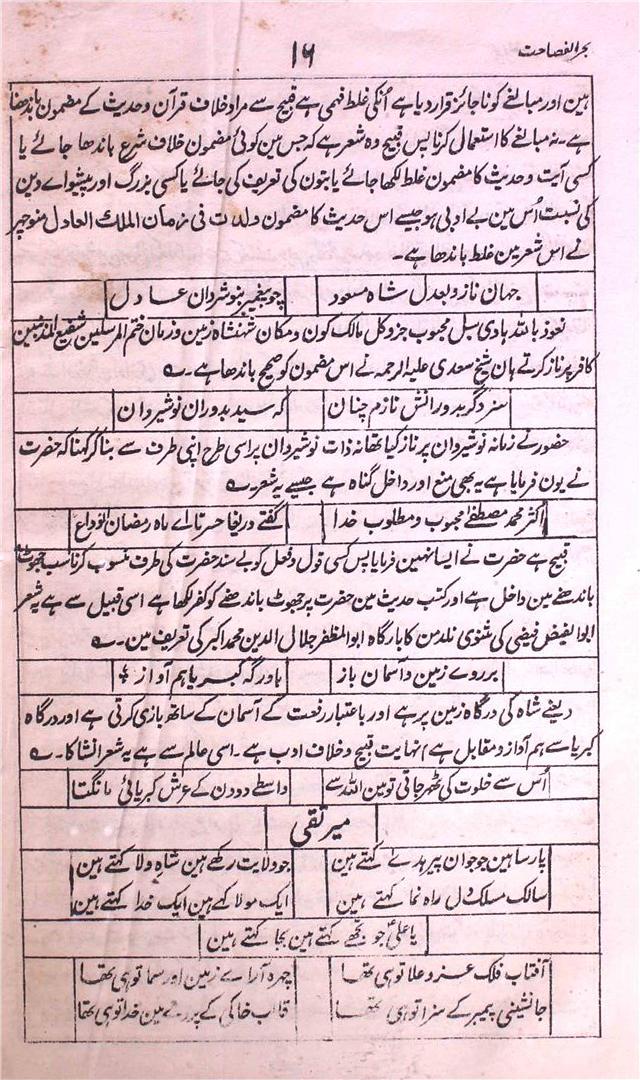 بحر الفصاحت
۱۶
ہین اور مبالغے کو ناجائز قرار دیا ہے اُنکی غلط فہمی ہے قبیح سے مراد خلاف قرآن و حدیث کے مضمون باندھنا
ہے۔ نہ مبالغے کا استعمال کرنا پس قبیح وہ شعر ہے کہ جس مین کوئی مضمون خلاف شرع باندھا جائے یا
کسی آیت و حدیث کا مضمون غلط لکھا جائے یا بتون کی تعریف کی جائے یا کسی بزرگ اور پیشواے دین
کی نسبت اُس مین بے ادبی ہو جیسے اس حدیث کا مضمون ولدت فی زمان الملك العادل منوچہر
نے اس شعر مین غلط باندھا ہے۔
جہان نازد بعدل شاہ مسعود
چو پیغمبر بنوشروان عادل
نعوذ باللہ ہادی سبل محبوب جزو کل مالک کون و مکان شہنشاہ زمین و زمان ختم المرسلین شفیع المذنبین
کافر پر ناز کرتے ہان شیخ سعدی علیہ الرحمہ نے اس مضمون کو صحیح باندھا ہے۔ ؎
سزد گر بدورانش نازم چنان
کہ سید بدوران نوشیروان
حضور نے زمانہ نوشیروان پر ناز کیا تھا نہ ذات نوشیروان پر اسی طرح اپنی طرف سے بنا کر کہنا کہ حضرت
نے یون فرمایا ہے یہ بھی منع اور داخل گناہ ہے جیسے یہ شعر ؎
اکثر محمد مصطفےٰ محبوب و مطلوب خدا
گفتے دریغا حسرتا اے ماہ رمضان الوداع
قبیح ہے حضرت نے ایسا نہین فرمایا پس کسی قول و فعل کو بے سند حضرت کی طرف منسوب کرنا سب جھوٹ
باندھنے مین داخل ہے اور کتب حدیث مین حضرت پر جھوٹ باندھنے کو کفر لکھا ہے اسی قبیل سے ہے یہ شعر
ابوالفیض فیضی کی مثنوی نلدمن کا بارگاہ ابوالمظفر جلال الدین محمد اکبر کی تعریف مین۔ ؎
بر روے زمین و آسمان باز
با درگہ کبریا ہم آواز
یعنے شاہ کی درگاہ زمین پر ہے اور باعتبار رفعت کے آسمان کے ساتھ بازی کرتی ہے اور درگاہ
کبریا سے ہم آواز و مقابل ہے) نہایت قبیح و خلاف ادب ہے۔ اسی عالم سے ہے یہ شعر انشا کا۔ ؎
اُس سے خلوت کی ٹھہر جاتی تو مین اللہ سے
واسطے دو دن کے عرش کبریائی مانگتا
میر تقی
پارسا ہین جو جوان پیر ہدےٰ کہتے ہین
جو ولایت رکھے ہین شاہ ولا کہتے ہین
سالک مسلک دل راہ نما کہتے ہین
ایک مولا کہے ہین ایک خدا کہتے ہین
یا علیؑ جو تجھے کہتے ہین بجا کہتے ہین
آفتاب فلک عز و علا تو ہی تھا
چہرہ آراے زمین اور سما تو ہی تھا
جانشینی پیمبر کے سزا تو ہی تھا
قالب خاکی کے پردے مین خدا تو ہی تھا